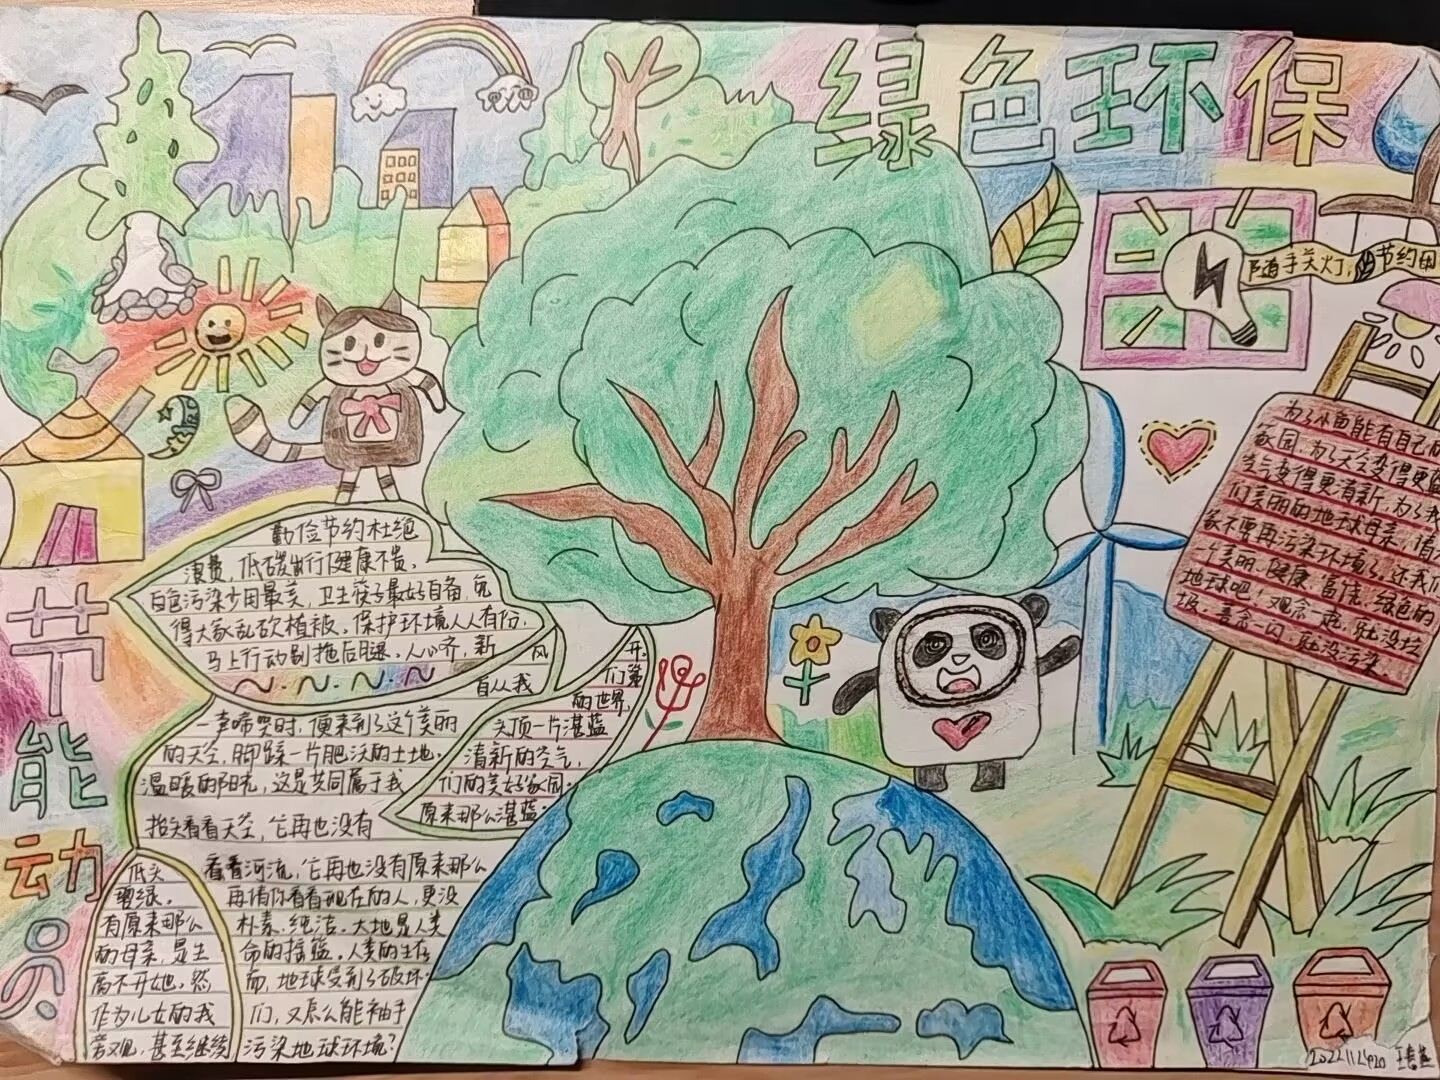 绿色环保
随手关灯，节约用
节能动员
勤俭节约杜绝
浪费，低碳出行健康不贵，
白色污染少用最美，卫生筷子最好自备，免
得大家乱砍植被。保护环境人人有份，
马上行动别拖后腿。人心齐，新
风
自从我
开，
们第
一声啼哭时，便来到了这个美丽
的世界，
的天空，脚踩一片肥沃的土地。
头顶一片湛蓝
清新的空气，
温暖的阳光，这是共同属于我
们的美好家园。
抬头看看天空，它再也没有
原来那么湛蓝；
低头
看看河流，它再也没有原来那么
碧绿。
再请你看看现在的人，更没
有原来那么
朴素、纯洁。大地是人类
的母亲，是生
命的摇篮。人类的生存
离不开她，然
而，地球受到了破坏。
作为儿女的我
们，又怎么能袖手
旁观，甚至继续
污染地球环境？
为了小鱼能有自己的
家园，为了天空变得更蓝
空气变得更清新，为了我
们美丽的地球母亲，请大
家不要再污染环境了。还我们
一个美丽、健康、富饶、绿色的
地球吧！观念一走，就没垃
圾。善念一闪，就没污染